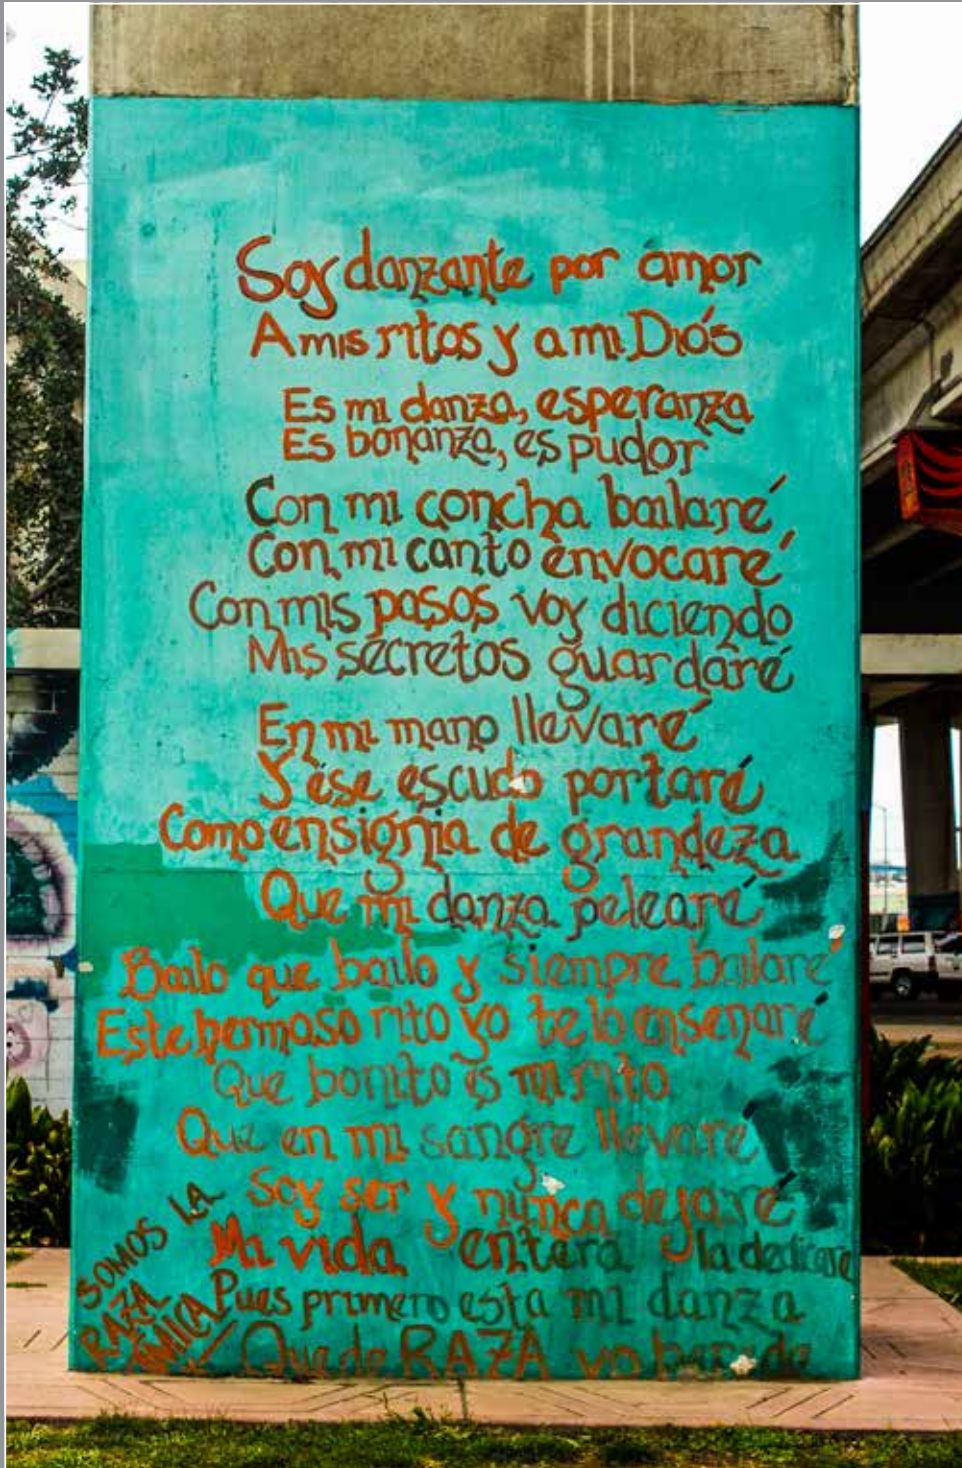 Soy danzante por ámor
A mis ritos y a mi Diós
Es mi danza, esperanza
Es bonanza, es pudor
Con mi concha bailaré
Con mi canto envocaré
Con mis pasos voy diciendo
Mis secretos guardaré
En mi mano llevaré
Y ése escudo portaré
Como ensignia de grandeza
Que mi danza pelearé
Bailo que bailo y siempre bailaré
Este hermoso rito yo te lo ensenaré
Que bonito es mi rito
Que en mi sangre llevaré
Soy ser y nunca dejaré
Mi vida entera la dedicare
Pues primero esta mi danza
Que de RAZA yo herede
SOMOS LA
RAZA